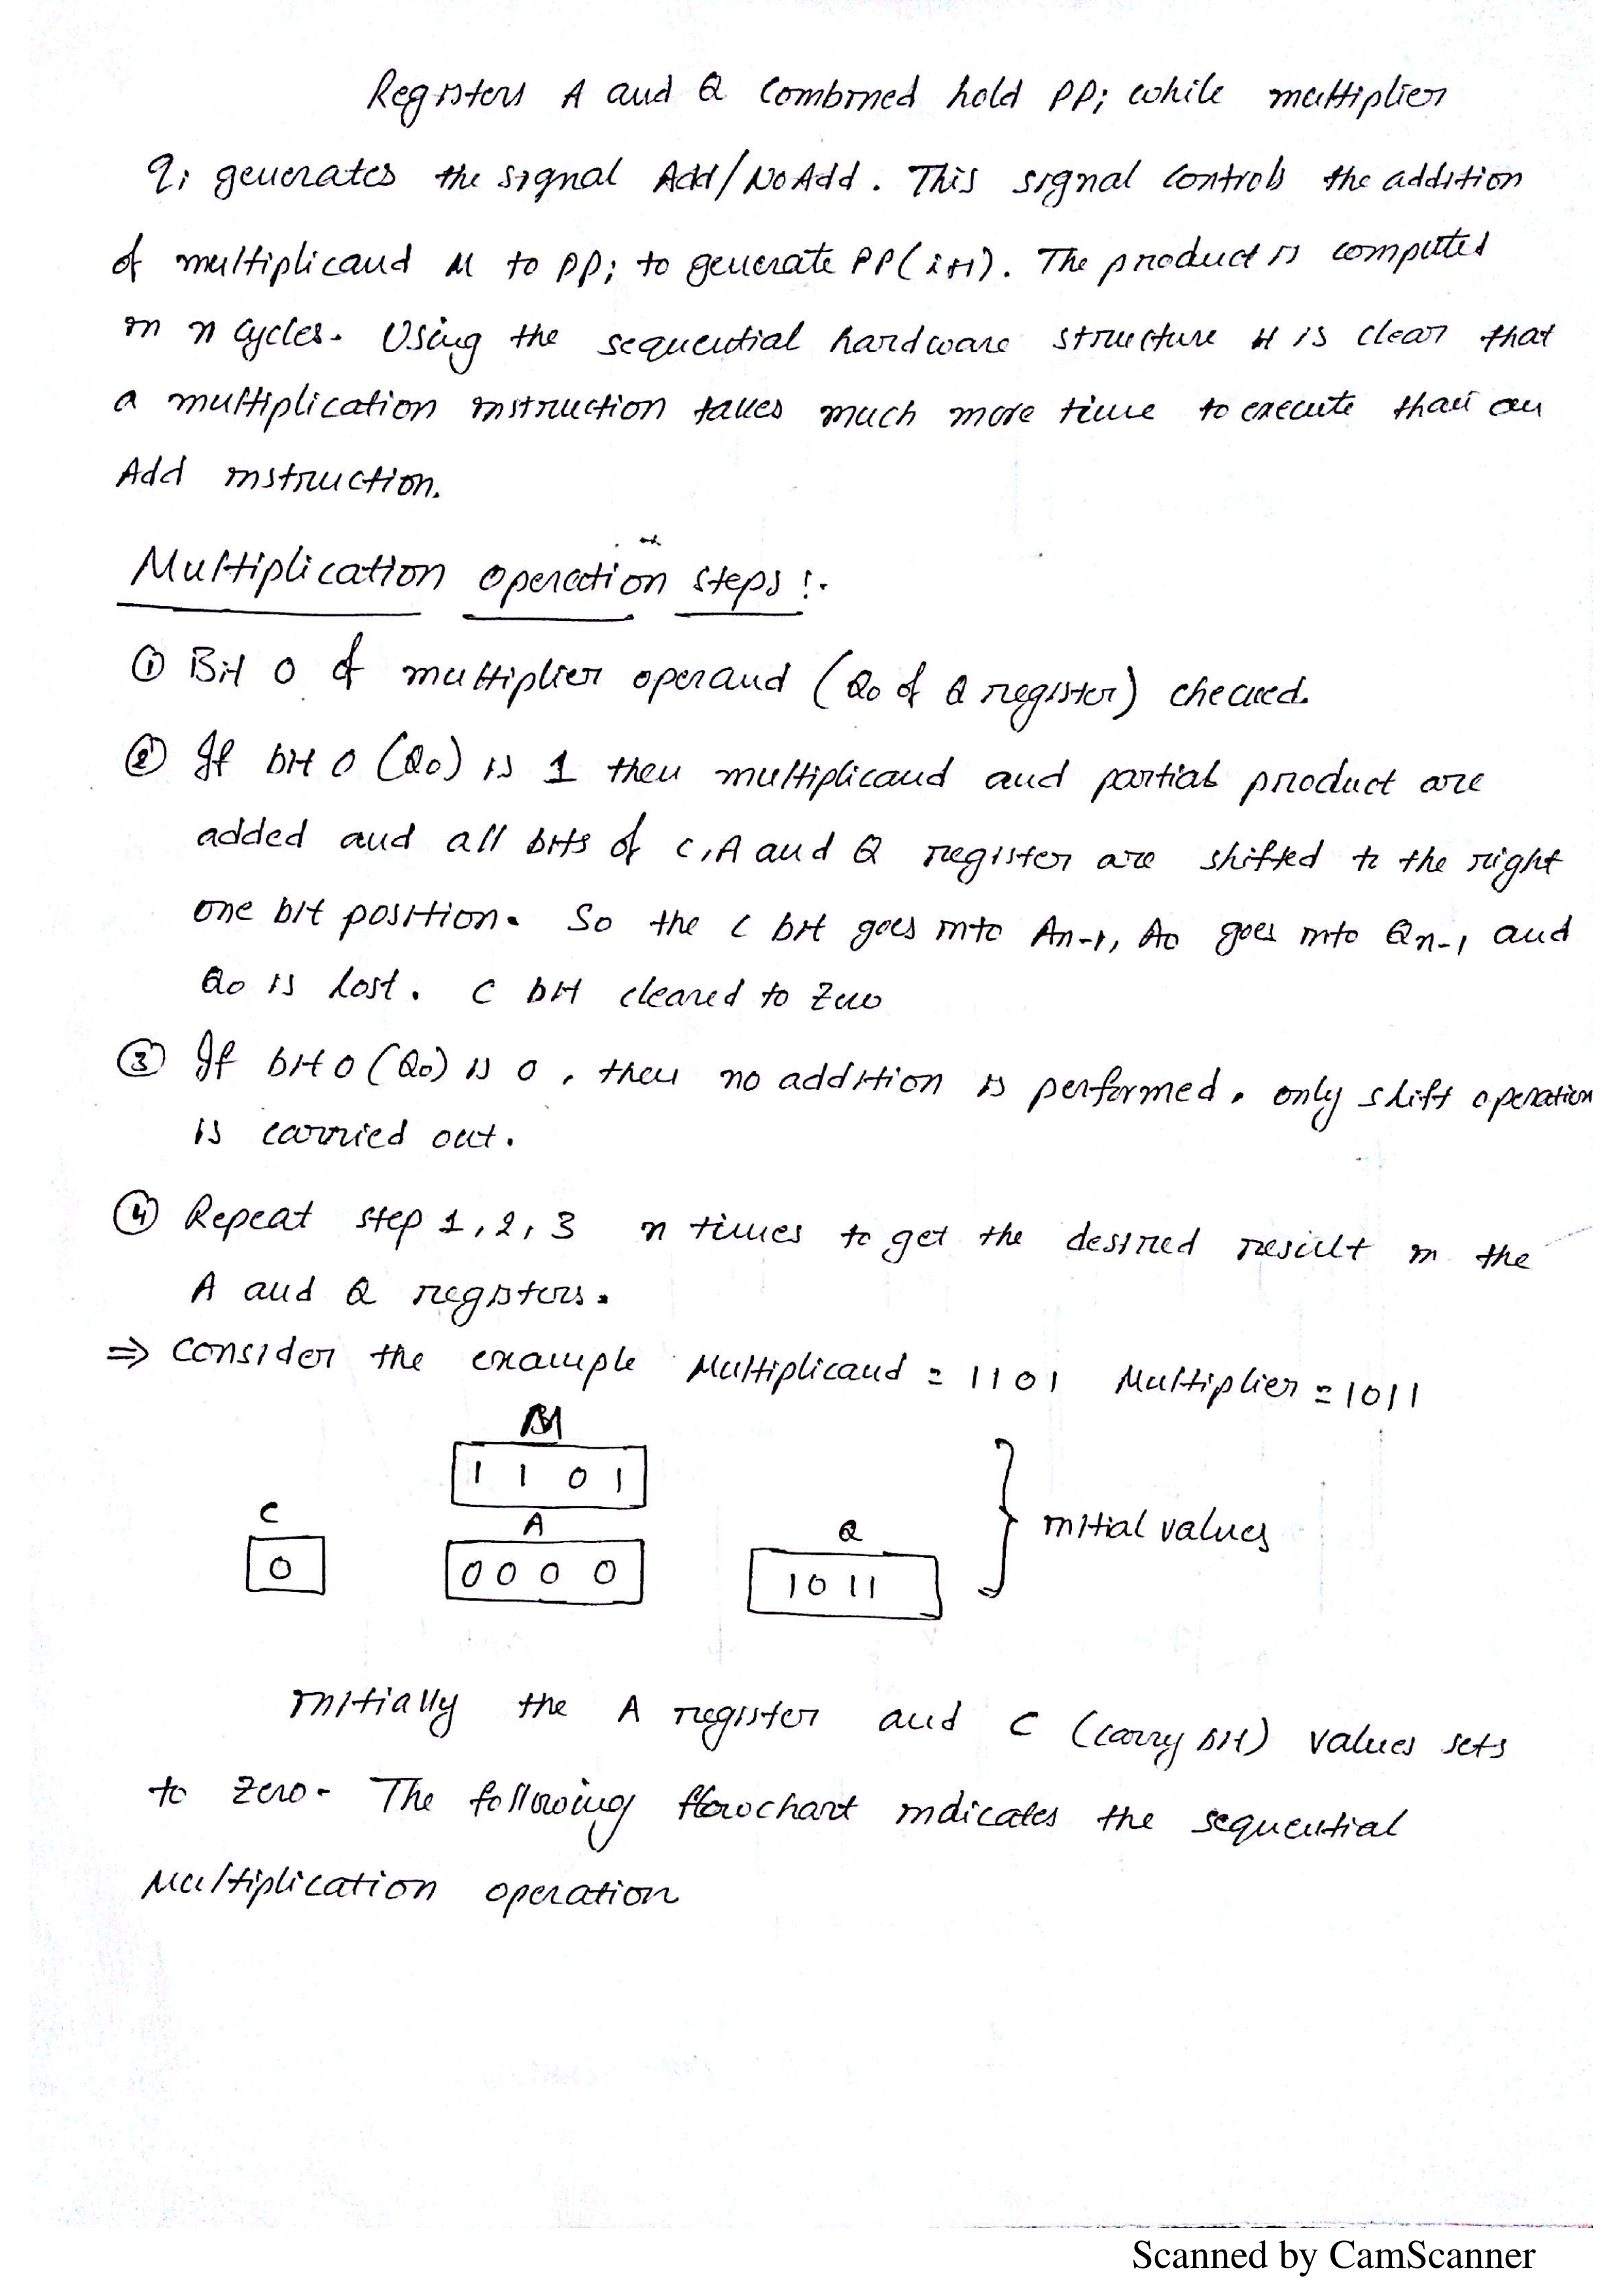 Registers A and Q combined hold PPi while multiplier
qi generates the signal Add/NoAdd. This signal controls the addition
of multiplicand M to PPi to generate PP(i+1). The product is computed
in n cycles. Using the sequential hardware structure it is clear that
a multiplication instruction takes much more time to execute than an
Add instruction.
Multiplication operation steps:-
① Bit 0 of multiplier operand (Q0 of Q register) checked.
② If bit 0 (Q0) is 1 then multiplicand and partial product are
added and all bits of C, A and Q register are shifted to the right
one bit position. So the C bit goes into An-1, A0 goes into Qn-1 and
Q0 is lost. C bit cleared to zero
③ If bit 0 (Q0) is 0, then no addition is performed. only shift operation
is carried out.
④ Repeat step 1, 2, 3 n times to get the desired result in the
A and Q registers.
⇒ Consider the example Multiplicand = 1101 Multiplier = 1011
M
1 1 0 1
C A Q initial values
0 0 0 0 0 1011
initially the A register and C (carry bit) values sets
to zero. The following flowchart indicates the sequential
Multiplication operation
Scanned by CamScanner